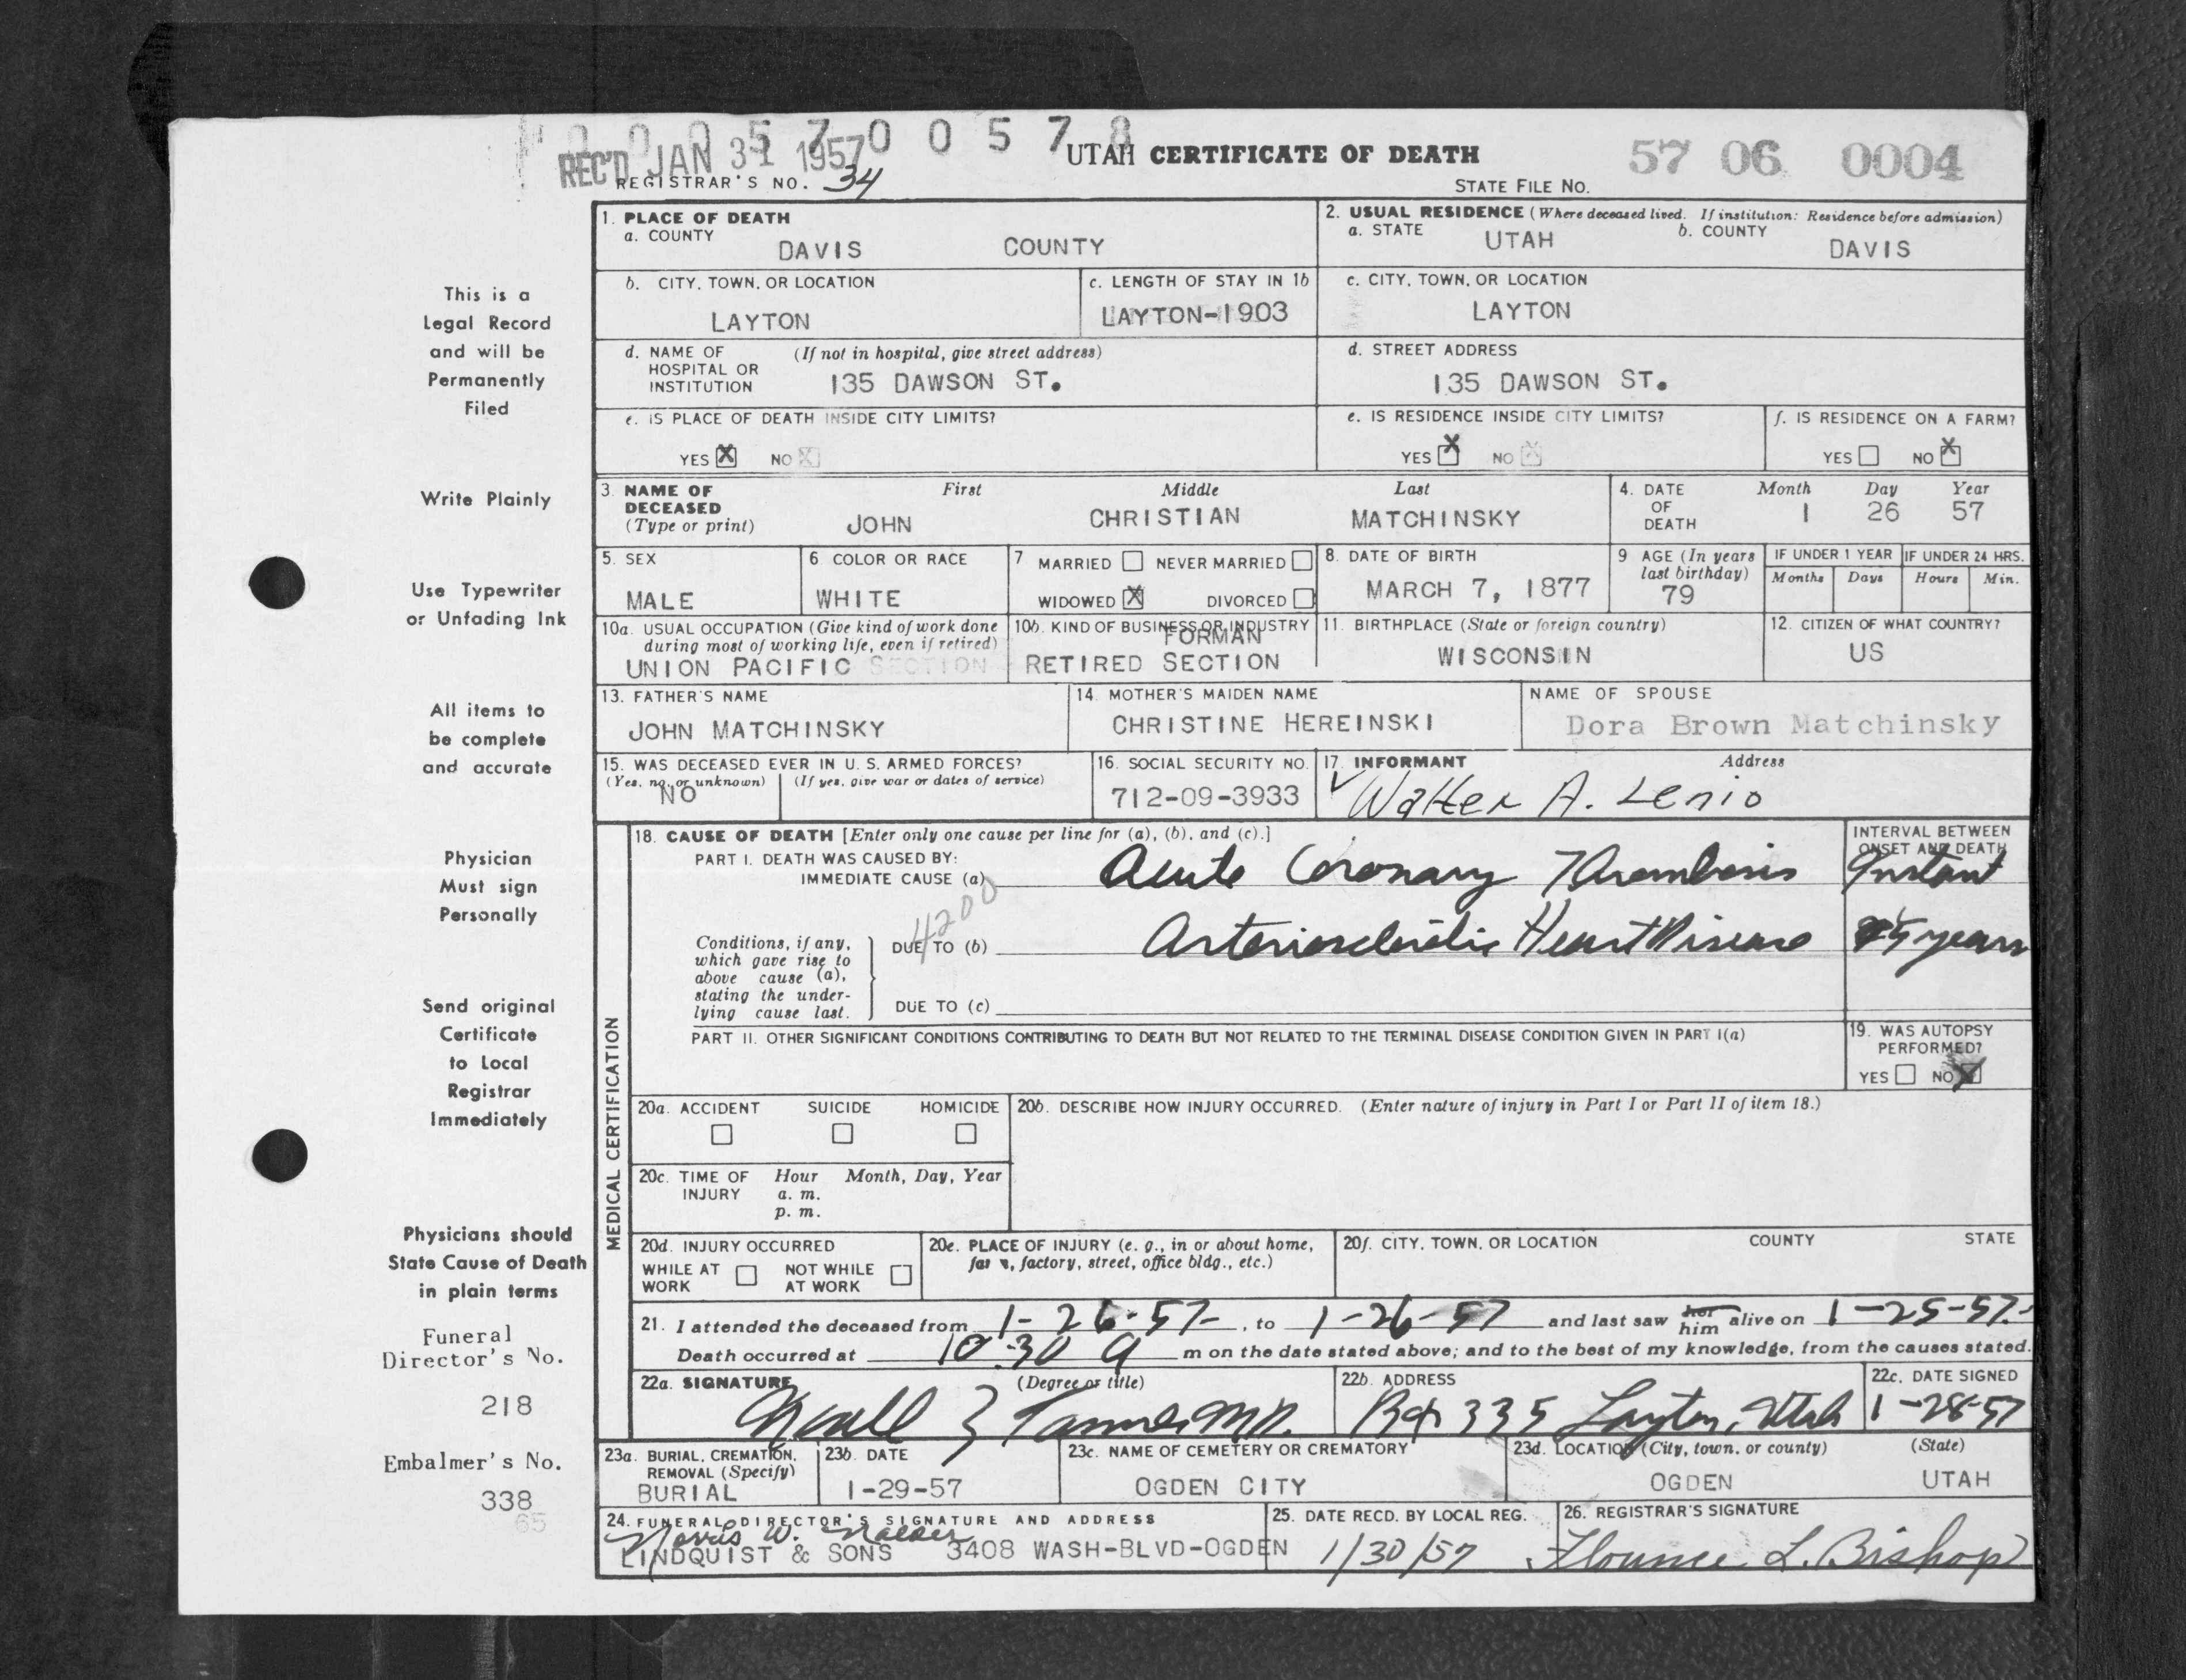 0 0 0 5 7 0 0 5 7 8
REC'D JAN 31 1957
UTAH CERTIFICATE OF DEATH
57 06 0004
REGISTRAR'S NO. 34
STATE FILE NO.
1. PLACE OF DEATH
a. COUNTY
DAVIS COUNTY
2. USUAL RESIDENCE (Where deceased lived. If institution: Residence before admission)
a. STATE UTAH b. COUNTY DAVIS
b. CITY, TOWN, OR LOCATION
LAYTON
c. LENGTH OF STAY IN 1b
LAYTON-1903
c. CITY, TOWN, OR LOCATION
LAYTON
d. NAME OF HOSPITAL OR INSTITUTION (If not in hospital, give street address)
135 DAWSON ST.
d. STREET ADDRESS
135 DAWSON ST.
e. IS PLACE OF DEATH INSIDE CITY LIMITS?
YES X NO
e. IS RESIDENCE INSIDE CITY LIMITS?
YES X NO
f. IS RESIDENCE ON A FARM?
YES NO X
3. NAME OF DECEASED (Type or print)
First Middle Last
JOHN CHRISTIAN MATCHINSKY
4. DATE OF DEATH
Month Day Year
1 26 57
5. SEX
MALE
6 COLOR OR RACE
WHITE
7 MARRIED NEVER MARRIED
WIDOWED X DIVORCED
8. DATE OF BIRTH
MARCH 7, 1877
9 AGE (In years last birthday)
79
IF UNDER 1 YEAR
Months Days
IF UNDER 24 HRS.
Hours Min.
10a. USUAL OCCUPATION (Give kind of work done during most of working life, even if retired)
UNION PACIFIC SECTION
10b. KIND OF BUSINESS OR INDUSTRY
FORMAN
RETIRED SECTION
11. BIRTHPLACE (State or foreign country)
WISCONSIN
12. CITIZEN OF WHAT COUNTRY?
US
13. FATHER'S NAME
JOHN MATCHINSKY
14. MOTHER'S MAIDEN NAME
CHRISTINE HEREINSKI
NAME OF SPOUSE
Dora Brown Matchinsky
15. WAS DECEASED EVER IN U. S. ARMED FORCES?
(Yes, no, or unknown) (If yes, give war or dates of service)
NO
16. SOCIAL SECURITY NO.
712-09-3933
17. INFORMANT Address
Walter A. Lenio
MEDICAL CERTIFICATION
18. CAUSE OF DEATH [Enter only one cause per line for (a), (b), and (c).]
INTERVAL BETWEEN ONSET AND DEATH
PART I. DEATH WAS CAUSED BY:
IMMEDIATE CAUSE (a) Acute Coronary Thrombosis Instant
4200
Conditions, if any, which gave rise to above cause (a), stating the underlying cause last.
DUE TO (b) Arteriosclerotic Heart Disease 5 years
DUE TO (c)
PART II. OTHER SIGNIFICANT CONDITIONS CONTRIBUTING TO DEATH BUT NOT RELATED TO THE TERMINAL DISEASE CONDITION GIVEN IN PART I(a)
19. WAS AUTOPSY PERFORMED?
YES NO X
20a. ACCIDENT SUICIDE HOMICIDE
20b. DESCRIBE HOW INJURY OCCURRED. (Enter nature of injury in Part I or Part II of item 18.)
20c. TIME OF INJURY Hour Month, Day, Year
a. m.
p. m.
20d. INJURY OCCURRED
WHILE AT WORK NOT WHILE AT WORK
20e. PLACE OF INJURY (e. g., in or about home, farm, factory, street, office bldg., etc.)
20f. CITY, TOWN, OR LOCATION COUNTY STATE
21. I attended the deceased from 1-26-57, to 1-26-57 and last saw her him alive on 1-25-57.
Death occurred at 10:30 a m on the date stated above; and to the best of my knowledge, from the causes stated.
22a. SIGNATURE (Degree or title)
Noall Z Tanner MD.
22b. ADDRESS
Box 335 Layton, Utah
22c. DATE SIGNED
1-28-57
23a. BURIAL, CREMATION, REMOVAL (Specify)
BURIAL
23b. DATE
1-29-57
23c. NAME OF CEMETERY OR CREMATORY
OGDEN CITY
23d. LOCATION (City, town, or county) (State)
OGDEN UTAH
24. FUNERAL DIRECTOR'S SIGNATURE AND ADDRESS
LINDQUIST & SONS 3408 WASH-BLVD-OGDEN
25. DATE RECD. BY LOCAL REG.
1/30/57
26. REGISTRAR'S SIGNATURE
Florence L. Bishop
This is a
Legal Record
and will be
Permanently
Filed
Write Plainly
Use Typewriter
or Unfading Ink
All items to
be complete
and accurate
Physician
Must sign
Personally
Send original
Certificate
to Local
Registrar
Immediately
Physicians should
State Cause of Death
in plain terms
Funeral
Director's No.
218
Embalmer's No.
338
65